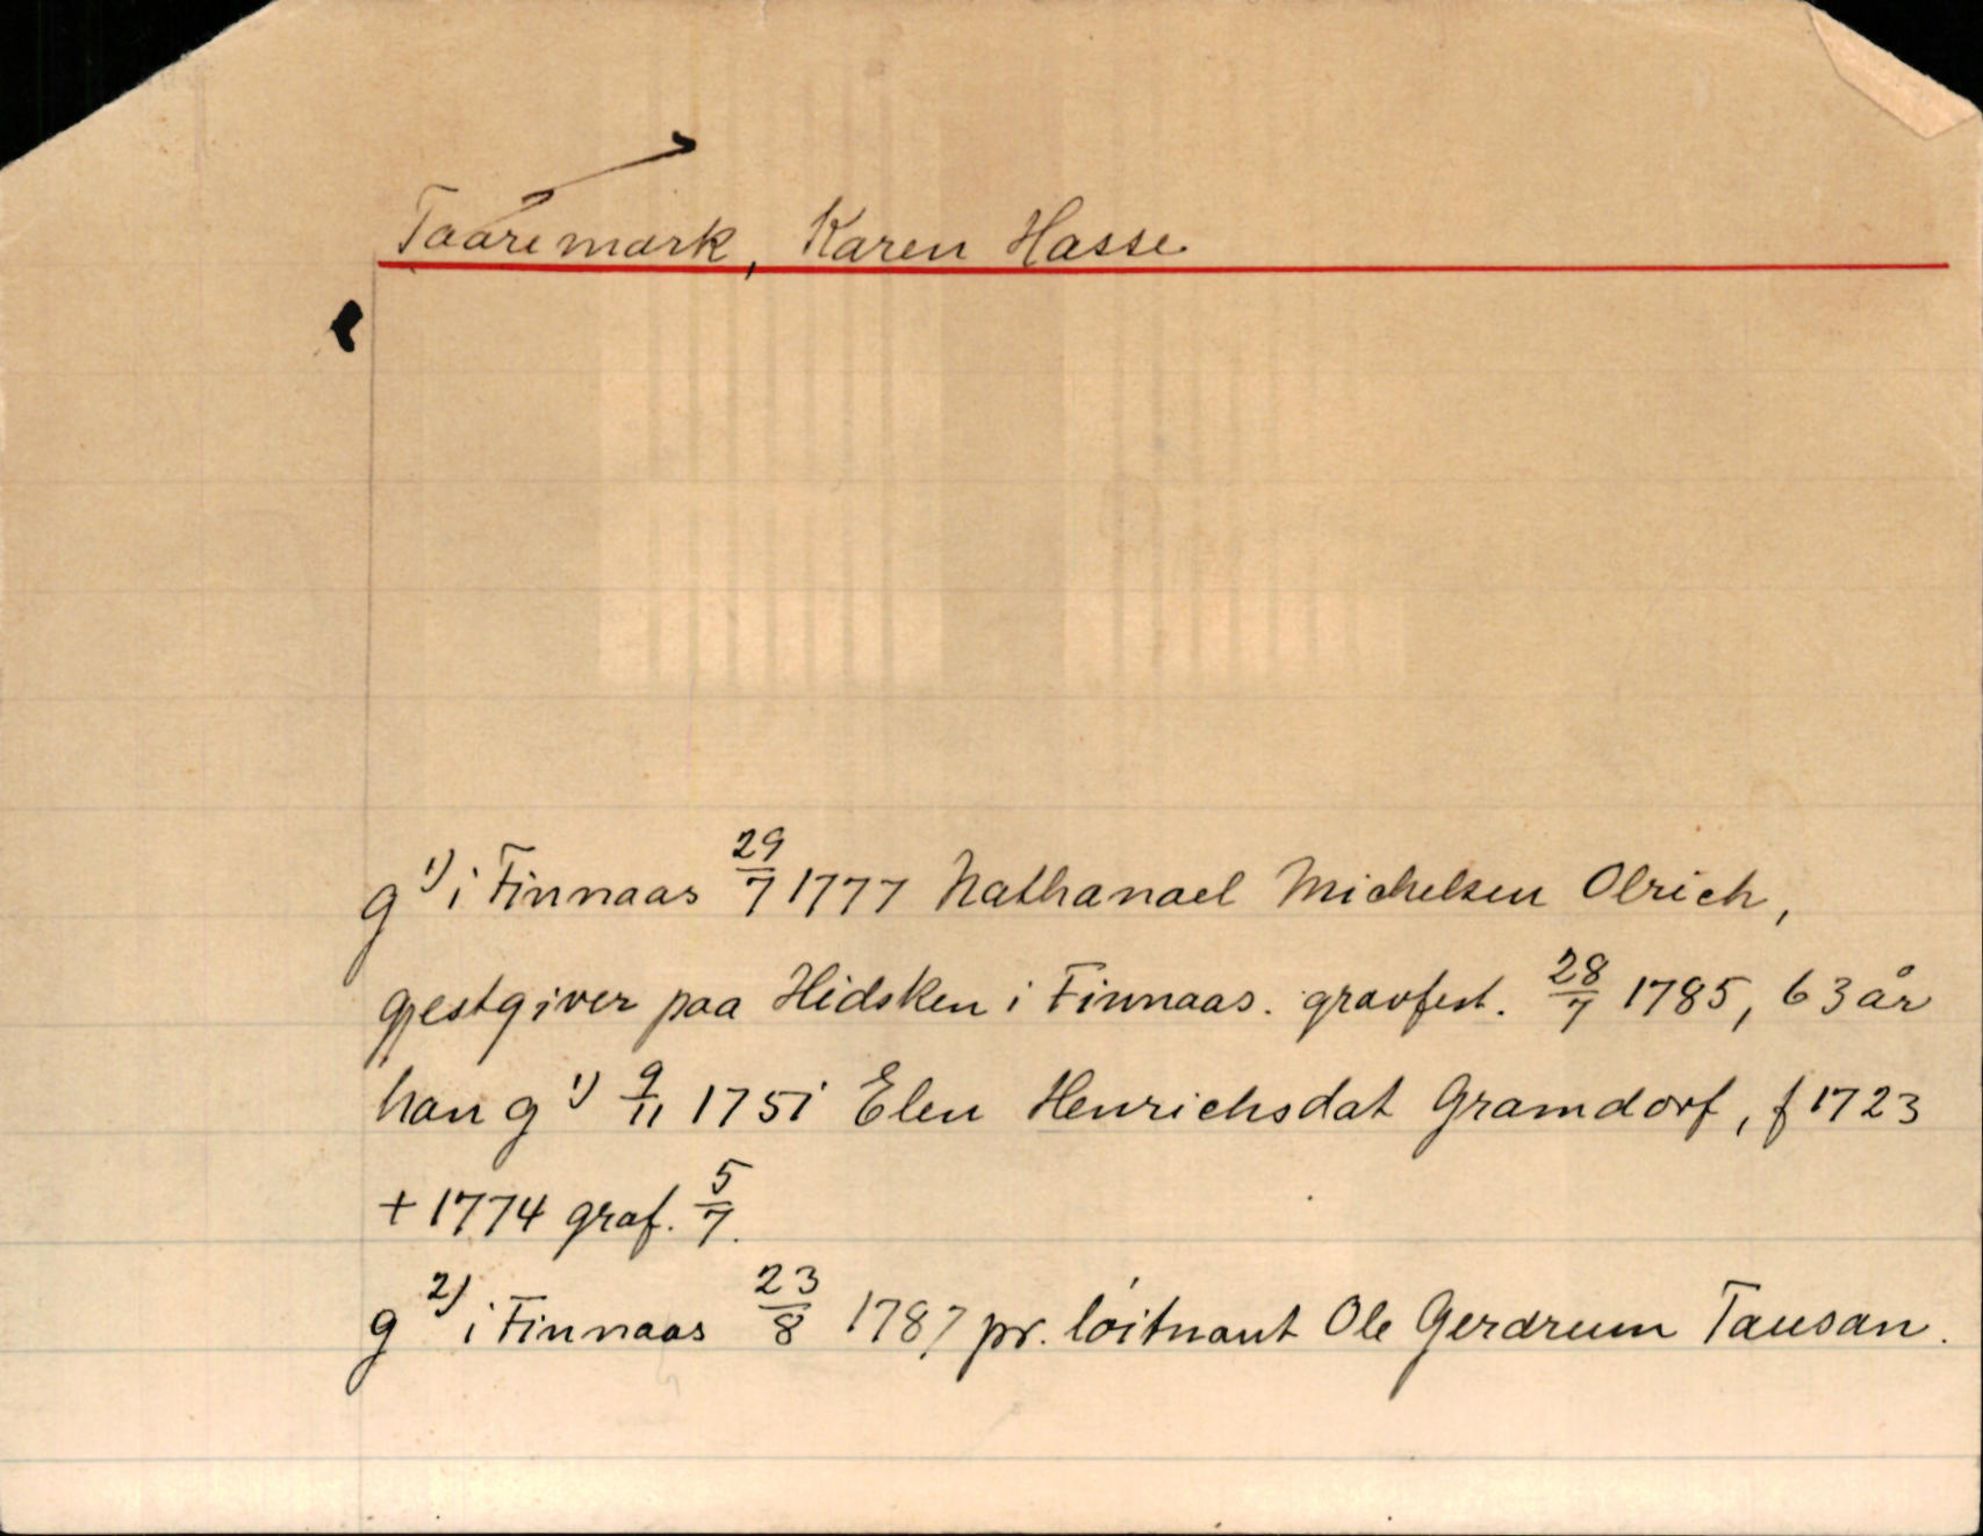 Taaremark, Karen Hasse
g 1) i Finnaas 29/7 1777 Nathanael Michelsen Olrich,
gjestgiver paa Hidsken i Finnaas. gravfest. 28/7 1785, 63 år
han g 1) 9/11 1751 Elen Henrichsdat Gramdorf, f 1723
+ 1774 graf. 5/7.
g 2) i Finnaas 23/8 1787 pr. løitnant Ole Gerdrum Tausan.